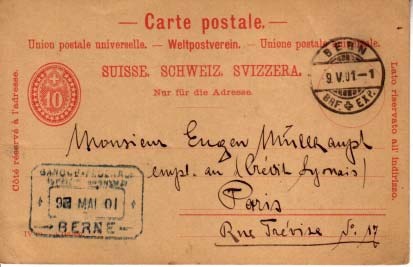 Carte postale.
Union postale universelle. — Weltpostverein. — Unione postale universale.
SUISSE. SCHWEIZ. SVIZZERA.
Nur für die Adresse.
Côté réservé à l'adresse.
Lato riservato all'indirizzo.
10
BERN
9. V. 01 – 1
BRF. EXP.
Monsieur Eugen Müllhaupt
empl. au (Crédit Lyonais)
Paris
Rue Trévise No. 17
BANQUE FÉDÉRALE
MAI 01
BERNE